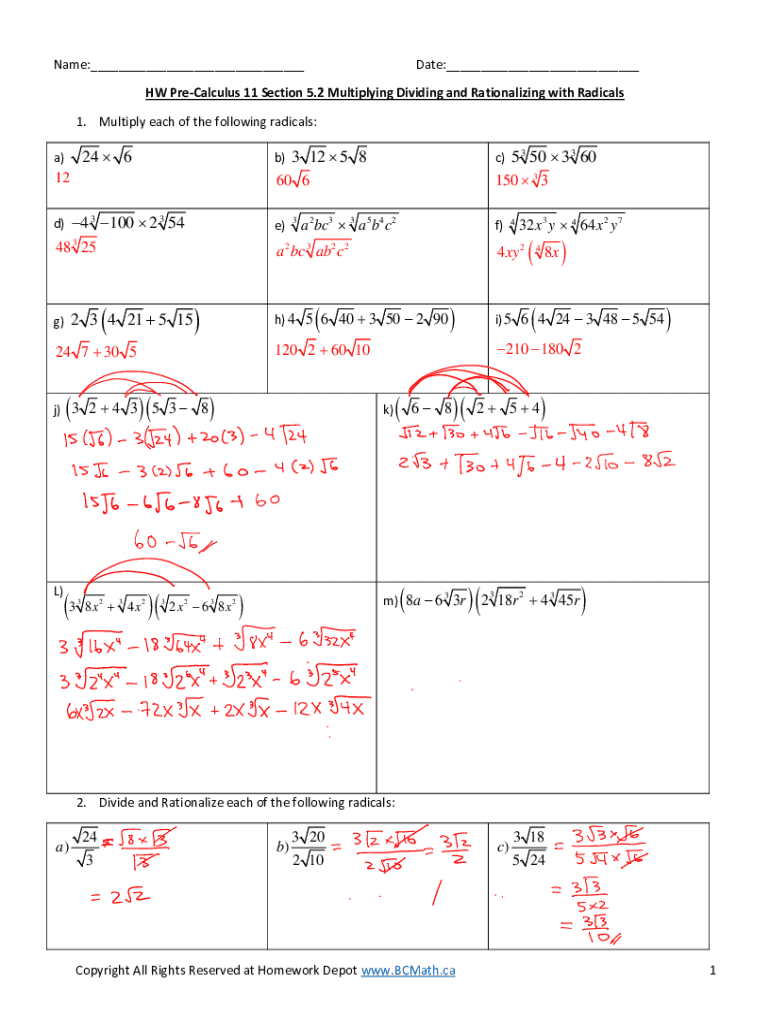 Name:_______________________________ Date:____________________________
HW Pre-Calculus 11 Section 5.2 Multiplying Dividing and Rationalizing with Radicals
1. Multiply each of the following radicals:
a) √24 × √6
12
b) 3√12 × 5√8
60√6
c) 5∛50 × 3∛60
150 × ∛3
d) −4∛−100 × 2∛54
48∛25
e) ∛a²bc³ × ∛a⁵b⁴c²
a²bc∛ab²c²
f) ∜32x³y × ∜64x²y⁷
4xy²(∜8x)
g) 2√3(4√21 + 5√15)
24√7 + 30√5
h) 4√5(6√40 + 3√50 − 2√90)
120√2 + 60√10
i) 5√6(4√24 − 3√48 − 5√54)
−210 − 180√2
j) (3√2 + 4√3)(5√3 − √8)
15(√6) − 3(√24) + 20(3) − 4√24
15√6 − 3(2)√6 + 60 − 4(2)√6
15√6 − 6√6 − 8√6 + 60
60 − √6
k) (√6 − √8)(√2 + √5 + 4)
√12 + √30 + 4√6 − √16 − √40 − 4√8
2√3 + √30 + 4√6 − 4 − 2√10 − 8√2
L)
(3∛8x² + ∛4x²)(∛2x² − 6∛8x²)
3∛16x⁴ − 18∛64x⁴ + ∛8x⁴ − 6∛32x⁴
3∛2⁴x⁴ − 18∛2⁶x⁴ + ∛2³x⁴ − 6∛2⁵x⁴
6x∛2x − 72x∛x + 2x∛x − 12x∛4x
m) (8a − 6∛3r)(2∛18r² + 4∛45r)
2. Divide and Rationalize each of the following radicals:
a) √24/√3 = √8 × √3/√3
= 2√2
b) 3√20/2√10 = 3√2 × √10/2√10 = 3√2/2
c) 3√18/5√24 = 3√3 × √6/5√4 × √6
= 3√3/5×2
= 3√3/10
Copyright All Rights Reserved at Homework Depot www.BCMath.ca 1